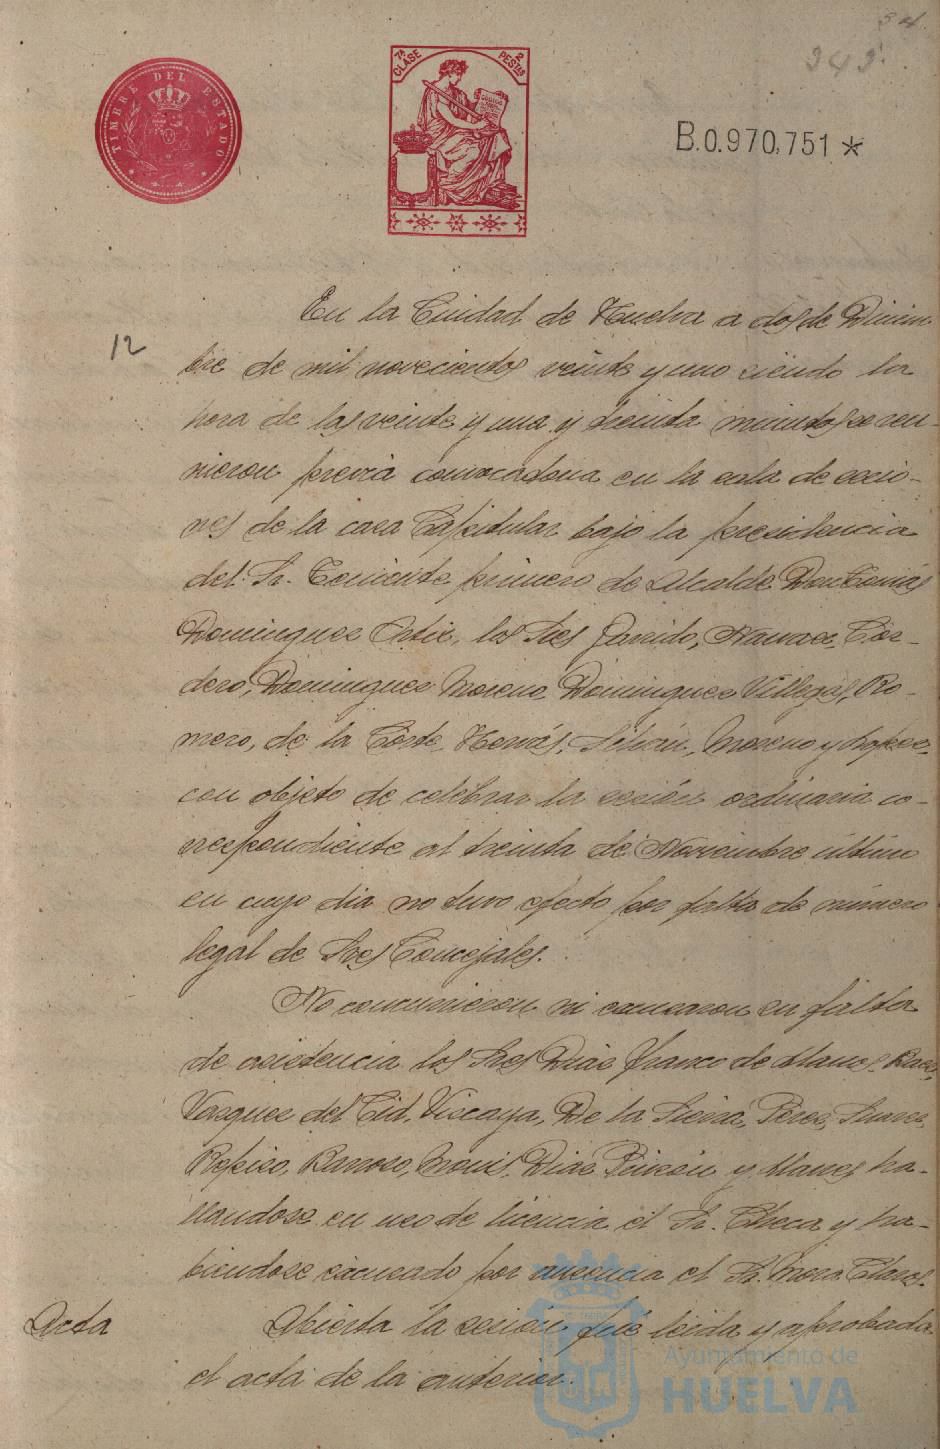 34
343
TIMBRE DEL ESTADO
7ª CLASE
2 PESTAS
B.0.970.751 *
En la Ciudad de Huelva a dos de Diciem
12
bre de mil novecientos veinte y uno siendo la
hora de las veinte y una y treinta minutos se reu-
nieron previa convocatoria en la sala de sesio-
nes de la casa Capitular bajo la presidencia
del Sr. Teniente primero de Alcalde Don Tomás
Dominguez Ortiz, los Sres Garrido, Narvaez, Cor-
dero, Dominguez Moreno, Dominguez Villegas, Ro-
mero, de la Corte, Moreno y Lopez
con objeto de celebrar la sesión ordinaria co-
rrespondiente al treinta de Noviembre último
en cuyo dia no tuvo efecto por falta de número
legal de Sres Concejales.
No concurrieron ni escusaron su falta
de asistencia los Sres Diaz Franco de Llanos,
Vazquez del Cid, Vizcaya, De la Sierra, Perez, Suarez,
Barroso, Diaz Pinzón y Llanes ha-
llandose en uso de licencia el Sr. Checa y ha-
biendose escusado por ausencia el Sr. Mora Claros.
Acta
Abierta la sesión fué leida y aprobada
el acta de la anterior.
Ayuntamiento de
HUELVA